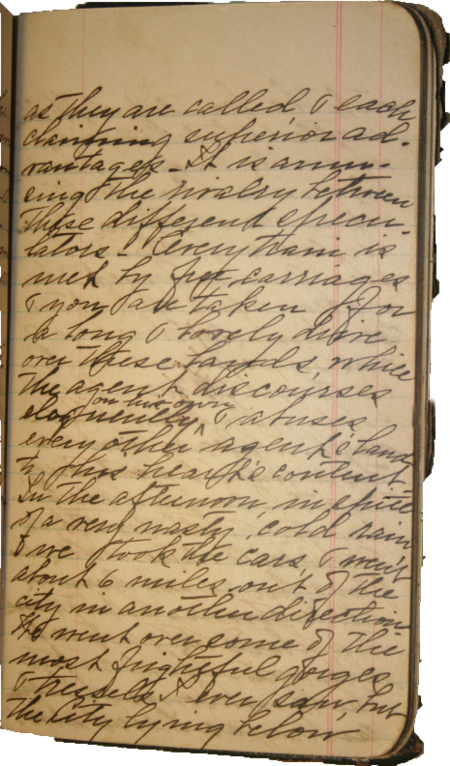 as they are called & each
claiming superior ad-
vantages - It is amu-
sing the rivalry between
these different specu-
lators - Every train is
met by free carriages
& you are taken for
a long & lovely drive
over these lands, while
the agent discourses
on his own
eloquently & abuses
every other agent's land
to his heart's content.
In the afternoon in spite
of a very nasty, cold rain
we took the cars & went
about 6 miles out of the
city in another direction.
We went over some of the
most frightful gorges
& tressels I ever saw, but
the City lying below